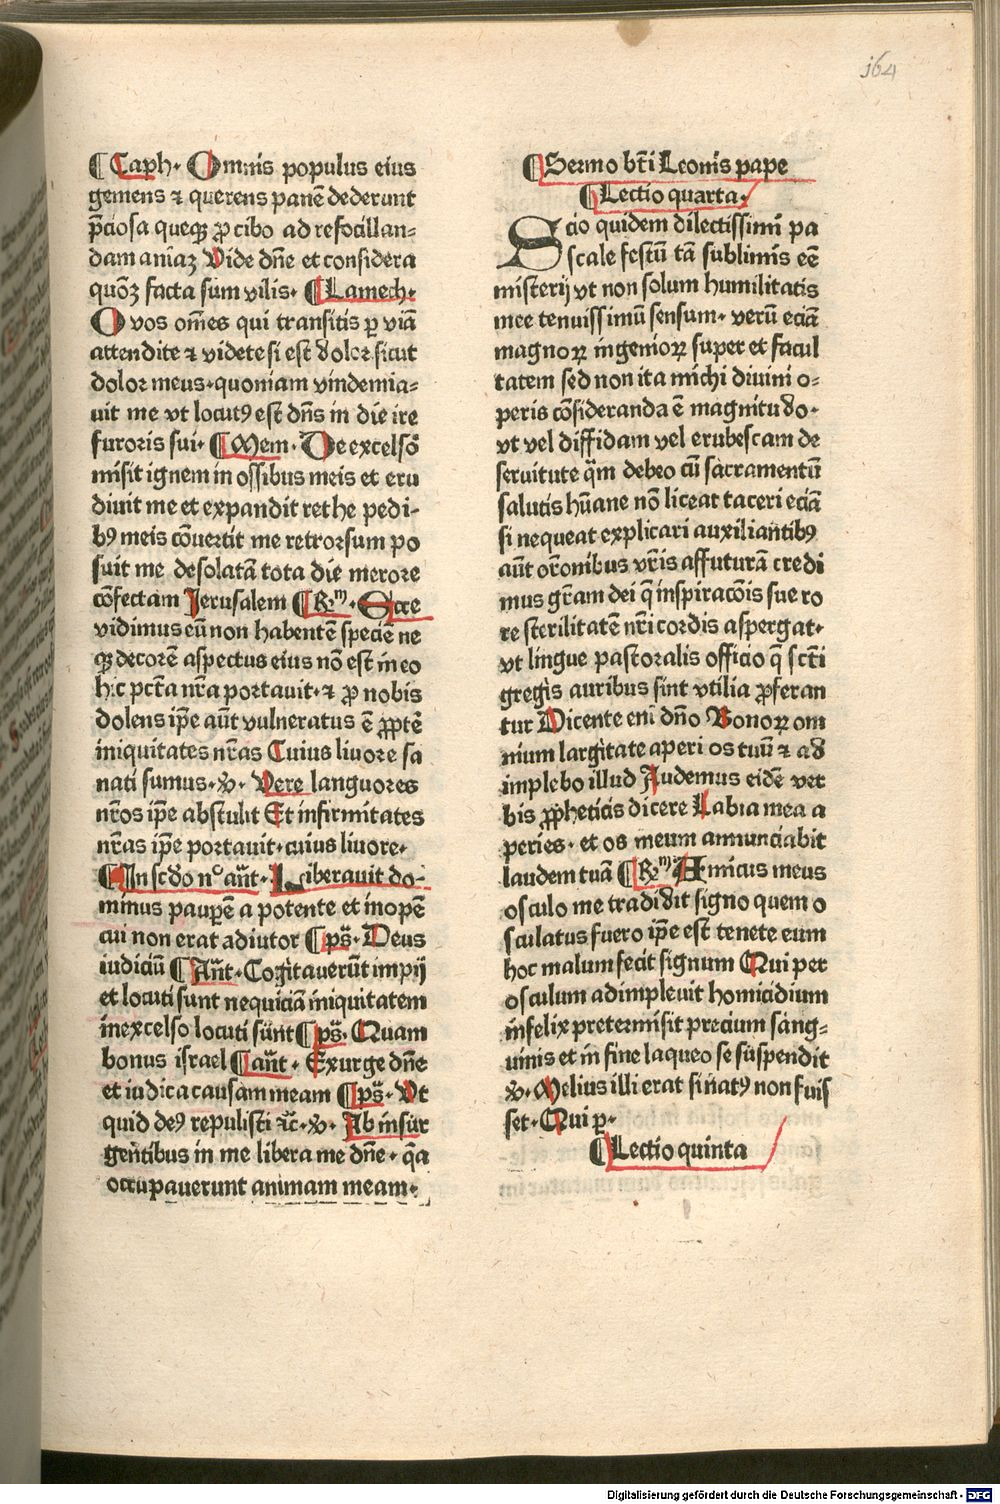 164
¶ Caph. Omnis populus eius
gemens ⁊ querens panē dederunt
p̄ciosa queqꝫ ꝓ cibo ad refocillan-
dam aniaꝫ Vide dn̄e et considera
quōꝫ facta sum vilis. ¶ Lamech.
O vos om̄es qui transitis ꝑ viā
attendite ⁊ videte si est dolor sicut
dolor meus. quoniam vindemia-
uit me vt locutꝰ est dn̄s in die ire
furoris sui. ¶ Mem. De excelso
misit ignem in ossibus meis et eru
diuit me et expandit rethe pedi-
bꝰ meis cōuertit me retrorsum po
suit me desolatā tota die merore
cōfectam Jerusalem ¶ Rm̄. Ecce
vidimus eū non habentē speciē ne
qꝫ decorē aspectus eius nō est in eo
hic pctā nr̄a portauit. ⁊ ꝓ nobis
dolens ip̄e aūt vulneratus ē ꝓptē
iniquitates nr̄as Cuius liuore sa
nati sumus. ꝟ. Vere languores
nr̄os ip̄e abstulit Et infirmitates
nr̄as ip̄e portauit. cuius liuore.
¶ In scd̄o n° an̄t. Liberauit do-
minus pauꝑē a potente et inopē
cui non erat adiutor ¶ ps̄. Deus
iudiciū ¶ An̄t. Cogitauerūt impij
et locuti sunt nequiciā iniquitatem
inexcelso locuti sūnt ¶ ps̄. Quam
bonus israel ¶ an̄t. Exurge dn̄e
et iudica causam meam ¶ ps̄. Vt
quid deꝰ repulisti ⁊c̄. ꝟ. Ab insur
gentibus in me libera me dn̄e. q̄a
occupauerunt animam meam.
¶ Sermo bt̄i Leonis pape
¶ Lectio quarta.
Scio quidem dilectissimi pa
scale festū tā sublimis eē
misterij vt non solum humilitatis
mee tenuissimū sensum. verū eciā
magnoꝝ ingenioꝝ superet facul
tatem sed non ita michi diuini o-
peris cōsideranda ē magnitudo.
vt vel diffidam vel erubescam de
seruitute q̄m debeo cū sacramentū
salutis hūane nō liceat taceri eciā
si nequeat explicari auxiliantibꝰ
aūt or̄onibus vr̄is affuturā credi
mus gr̄am dei q̄ inspiracōis sue ro
re sterilitatē nr̄i cordis aspergat.
vt lingue pastoralis officio q̄ sct̄i
gregis auribus sint vtilia ꝓferan
tur Dicente eni dn̄o Bonoꝝ om
nium largitate aperi os tuū ⁊ ad
implebo illud Audemus eidē ver
bis ꝓpheticis dicere Labia mea a
peries. et os meum annunciabit
laudem tuā ¶ Rm̄ Amicus meus
osculo me tradidit signo quem o
sculatus fuero ip̄e est tenete eum
hoc malum fecit signum Qui per
osculum adimpleuit homicidium
infelix pretermisit precium sang-
uinis et in fine laqueo se suspendit
ꝟ. Melius illi erat si natꝰ non fuis
set. Qui ꝑ.
¶ Lectio quinta
Digitalisierung gefördert durch die Deutsche Forschungsgemeinschaft - DFG